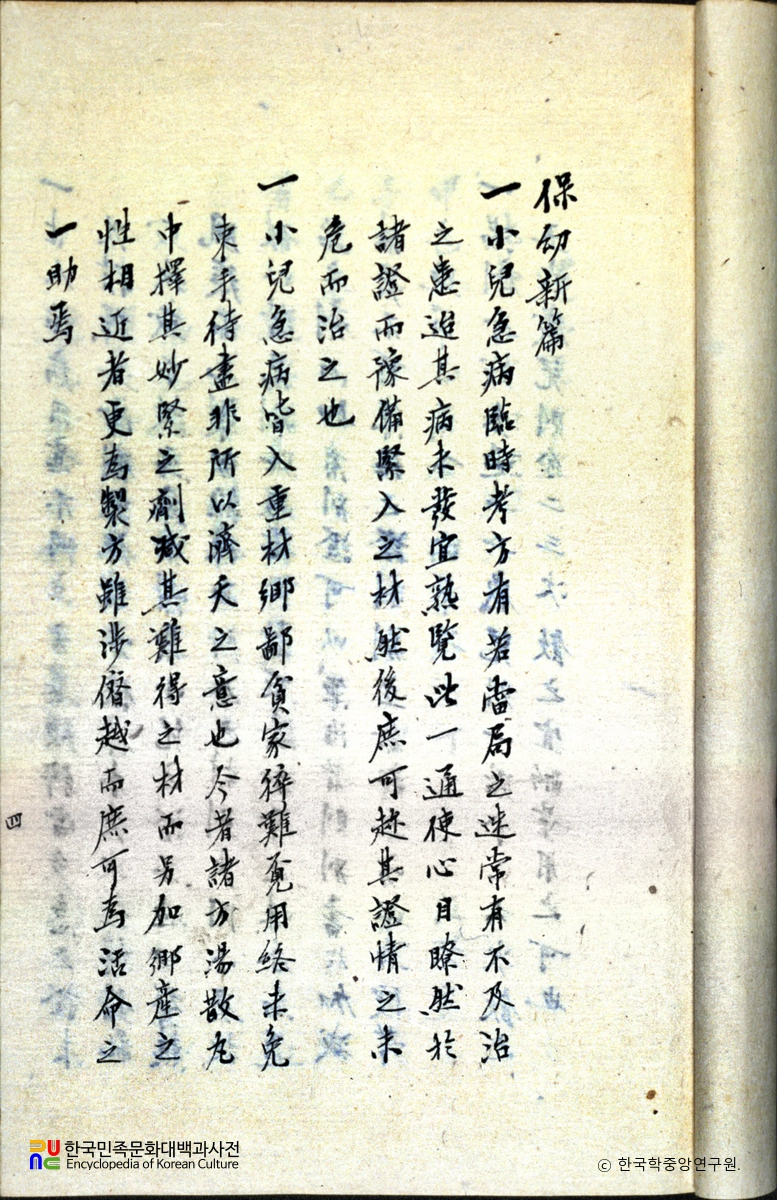 保幼新篇
一小兒急病臨時考方有若當局之迷常有不及治
之患迨其病未發宜熟覽此一通使心目瞭然於
諸證而豫備緊入之材然後庶可趁其證情之未
危而治之也
一小兒急病皆入重材鄕鄙貧家猝難覓用終未免
束手待盡非所以濟夭之意也今者諸方湯散丸
中擇其妙緊之劑減其難得之材而另加鄕産之
性相近者更爲製方雖涉僭越而庶可爲活命之
一助焉
四
한국민족문화대백과사전
Encyclopedia of Korean Culture
ⓒ 한국학중앙연구원.